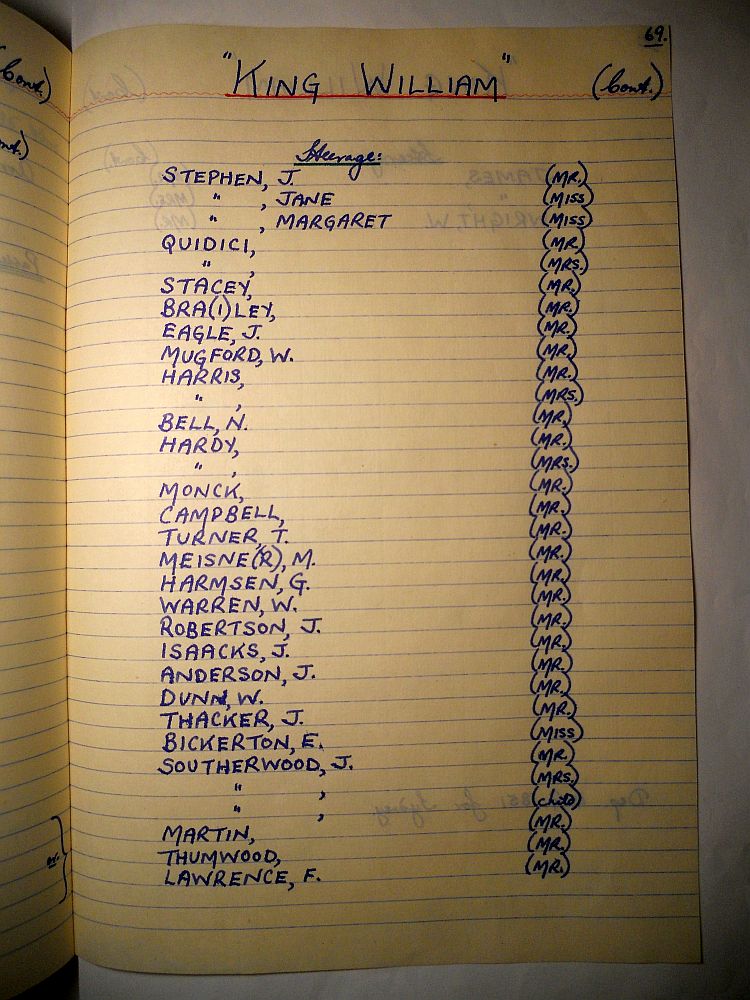 69.
"KING WILLIAM" (Cont.)
Steerage:
STEPHEN, J. (MR.)
" , JANE (MISS)
" , MARGARET (MISS)
QUIDICI, (MR.)
" , (MRS.)
STACEY, (MR.)
BRA(I)LEY, (MR.)
EAGLE, J. (MR.)
MUGFORD, W. (MR.)
HARRIS, (MR.)
" , (MRS.)
BELL, N. (MR.)
HARDY, (MR.)
" , (MRS.)
MONCK, (MR.)
CAMPBELL, (MR.)
TURNER, T. (MR.)
MEISNE(R), M. (MR.)
HARMSEN, G. (MR.)
WARREN, W. (MR.)
ROBERTSON, J. (MR.)
ISAACKS, J. (MR.)
ANDERSON, J. (MR.)
DUNN, W. (MR.)
THACKER, J. (MR.)
BICKERTON, E. (MISS)
SOUTHERWOOD, J. (MR.)
" , (MRS.)
" , (child)
MARTIN, (MR.)
THUMWOOD, (MR.)
LAWRENCE, F. (MR.)